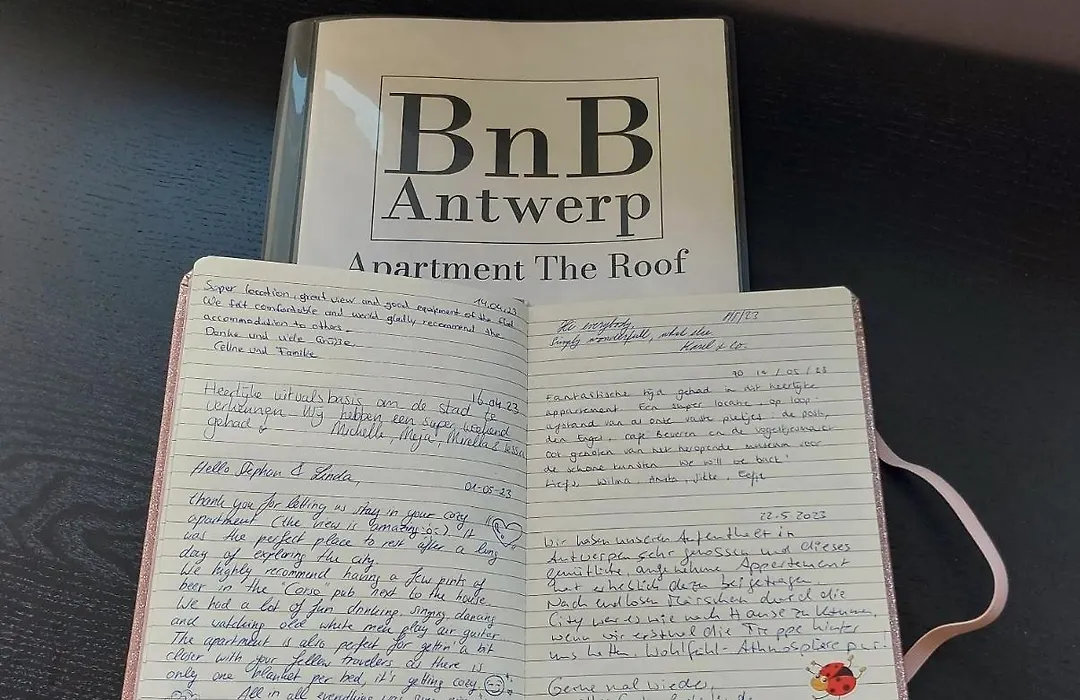 BnB
Antwerp
Apartment The Roof
14.04.23
Super location, great view and good equipment of the flat
We felt comfortable and would gladly recommend the
accommodation to others.
Danke und viele Grüße,
Celine und Familie
16.04.23
Heerlijke uitvalsbasis om de stad te
verkennen. Wij hebben een super weekend
gehad Michelle, Meja, Mirella & Tessa
Hello Stephan & Linda,
01-05-23
thank you for letting us stay in your cozy
apartment (the view is amazing :o:). It
was the perfect place to rest after a long
day of exploring the city.
We highly recommend having a few pints of
beer in the "Corso pub" next to the house.
We had a lot of fun drinking, singing, dancing
and watching old white men play air guitar
The apartment is also perfect for gettin' a bit
closer with your fellow travelers as there is
only one blanket per bed, it's getting cozy
All in all everything
Hi everybody,
Simply wonderfull, what else
Karel & Co.
14/05/23
Fantastische tijd gehad in dit heerlijke
appartement. Een super locatie, op loop-
afstand van al onze vaste plekjes: de post,
den Engel, café Beveren en de Vogeltjesmarkt
Ook genoten van het heropende museum voor
de schone kunsten. We will be back!
Liefs, Wilma, Anita, Jitke, Eefje
22-5-2023
Wir haben unseren Aufenthalt in
Antwerpen sehr genossen und dieses
gemütliche, angenehme Appartement
hat erheblich dazu beigetragen.
Nach endlosen Märschen durch die
City war es wie nach Hause zu kommen,
wenn wir erstmal die Treppe hinter
uns hatten. Wohlfühl-Athmosphäre pur!
Gerne mal wieder,